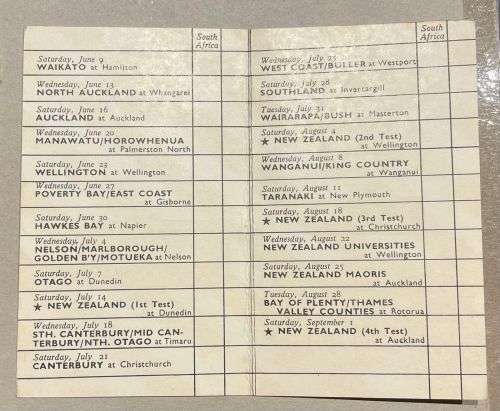 South
Africa
Saturday, June 9
WAIKATO at Hamilton
Wednesday, June 13
NORTH AUCKLAND at Whangarei
Saturday, June 16
AUCKLAND at Auckland
Wednesday, June 20
MANAWATU/HOROWHENUA
at Palmerston North
Saturday, June 23
WELLINGTON at Wellington
Wednesday, June 27
POVERTY BAY/EAST COAST
at Gisborne
Saturday, June 30
HAWKES BAY at Napier
Wednesday, July 4
NELSON/MARLBOROUGH/
GOLDEN B'Y/MOTUEKA at Nelson
Saturday, July 7
OTAGO at Dunedin
Saturday, July 14
★ NEW ZEALAND (1st Test)
at Dunedin
Wednesday, July 18
STH. CANTERBURY/MID CAN-
TERBURY/NTH. OTAGO at Timaru
Saturday, July 21
CANTERBURY at Christchurch
South
Africa
Wednesday, July 25
WEST COAST/BULLER at Westport
Saturday, July 28
SOUTHLAND at Invercargill
Tuesday, July 31
WAIRARAPA/BUSH at Masterton
Saturday, August 4
★ NEW ZEALAND (2nd Test)
at Wellington
Wednesday, August 8
WANGANUI/KING COUNTRY
at Wanganui
Saturday, August 11
TARANAKI at New Plymouth
Saturday, August 18
★ NEW ZEALAND (3rd Test)
at Christchurch
Wednesday, August 22
NEW ZEALAND UNIVERSITIES
at Wellington
Saturday, August 25
NEW ZEALAND MAORIS
at Auckland
Tuesday, August 28
BAY OF PLENTY/THAMES
VALLEY COUNTIES at Rotorua
Saturday, September 1
★ NEW ZEALAND (4th Test)
at Auckland